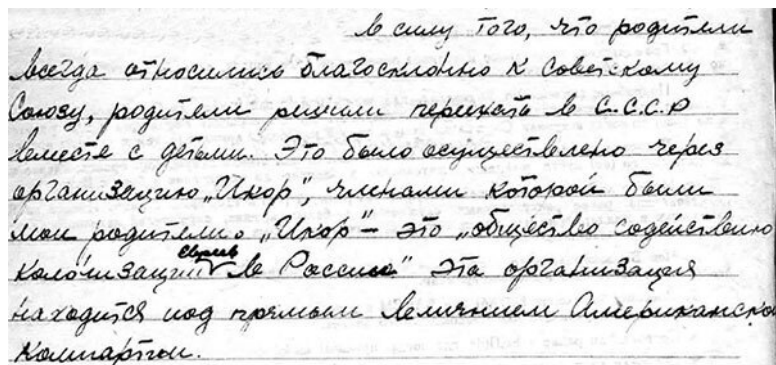 в силу того, что родители
всегда относились благосклонно к Советскому
Союзу, родители решили переехать в С.С.С.Р
вместе с детьми. Это было осуществлено через
организацию „Икор", членами которой были
мои родители. „Икор" – это „общество содействию
колонизации евреев в России" эта организация
находится под прямым влиянием Американской
компартии.